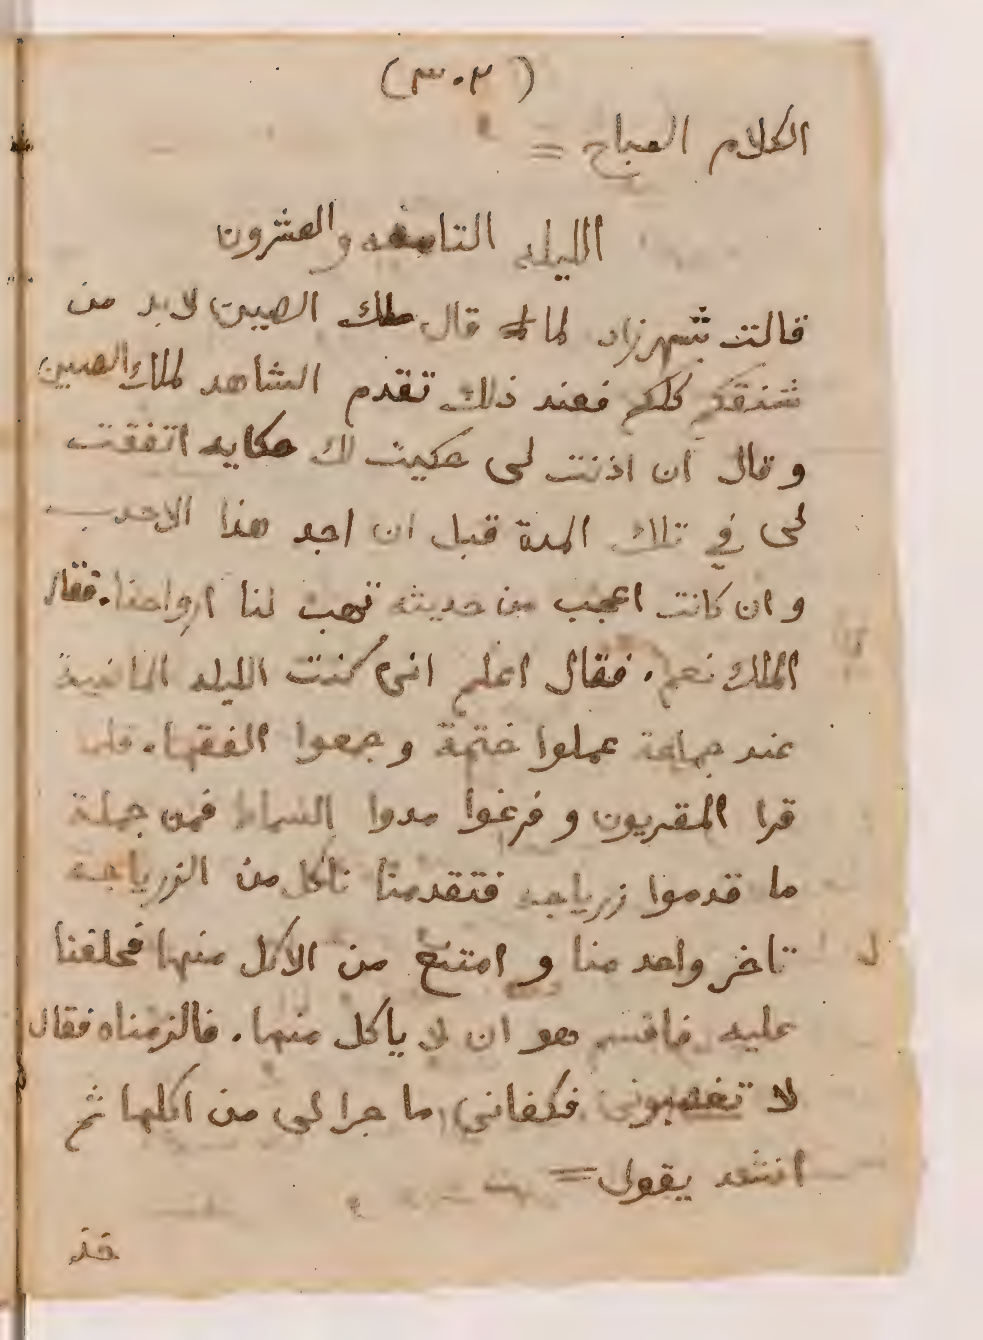 (٣٠٢)
الكلام المباح =
الليله التاسعه والعشرون
قالت شهرزاد لما قال ملك الصين لا بد من
شنقكم كلكم فعند ذلك تقدم الشاهد لملك الصين
وقال ان اذنت لى حكيت لك حكايه اتفقت
لى في تلك المدة قبل ان اجد هذا الاحدب
و ان كانت اعجب من حديثه تهب لنا ارواحنا. فقال
الملك نعم. فقال اعلم انى كنت الليله الماضية
عند جماعة عملوا ختمة و جمعوا الفقها. فلما
قرا المقريون و فرغوا مدوا السماط فمن جملة
ما قدموا زرباجه فتقدمنا ناكل من الزرباجه
تاخر واحد منا و امتنع من الاكل منها فحلفنا
عليه فاقسم هو ان لا ياكل منها. فالزمناه فقال
لا تغصبونى فكفانى ما جرا لى من اكلها ثم
انشد يقول =
خذ